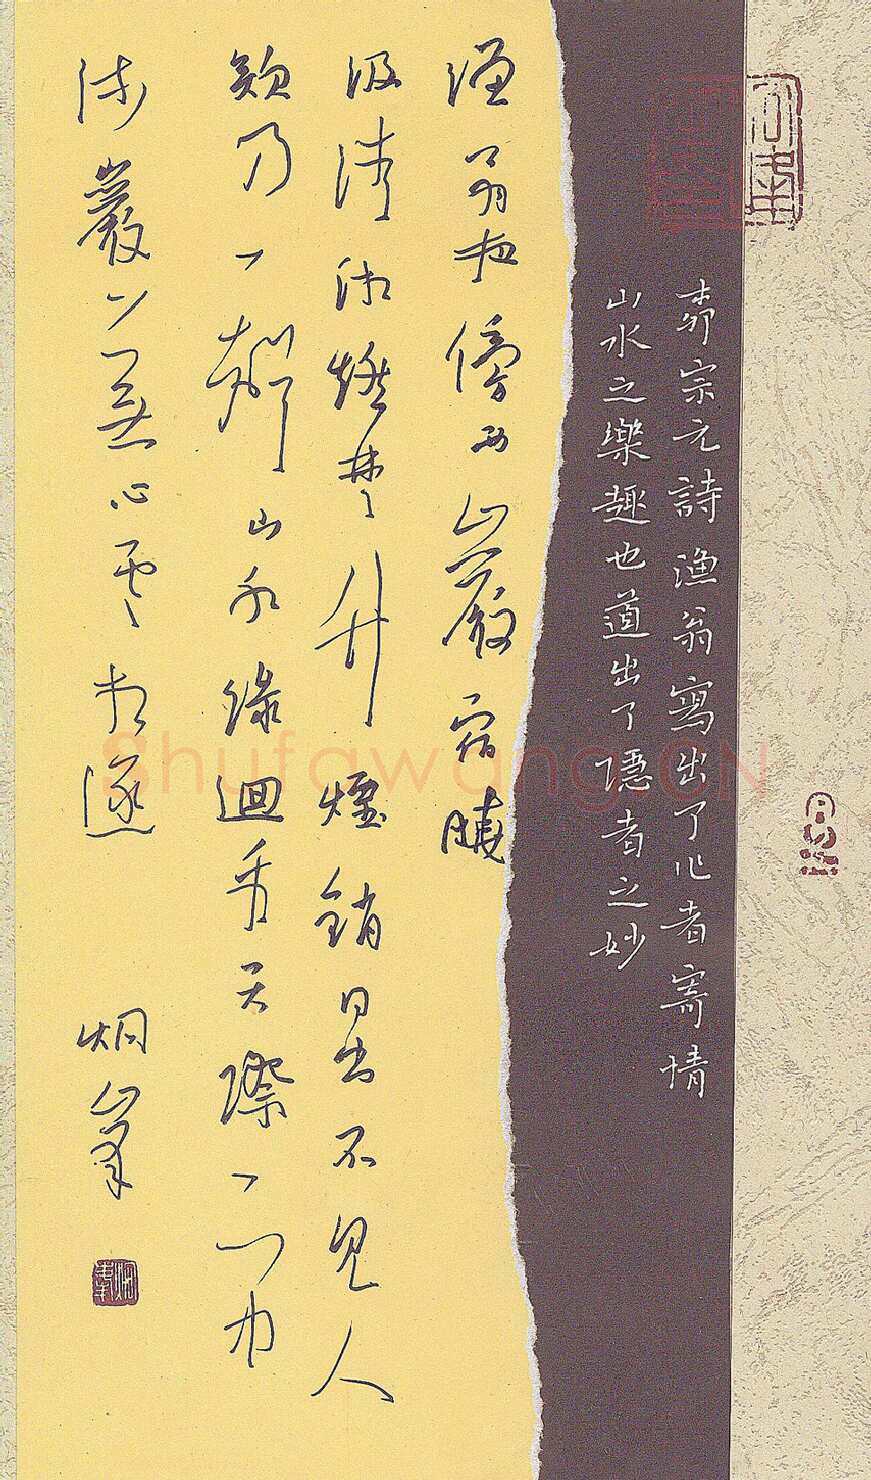 柳宗元詩漁翁寫出了作者寄情
山水之樂趣也道出了隱者之妙
漁翁夜傍西山巖宿曉
汲清湘燃楚竹煙銷日出不見人
欸乃一聲山水綠迴看天際下中
流巖上無心雲相逐
烟峯
Shufawang.CN